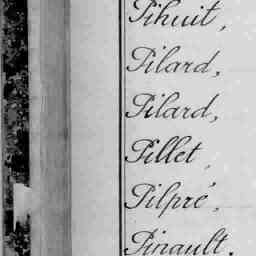 Pihuit,
Pilard,
Pilard,
Pillet,
Pilpré,
Pinault.